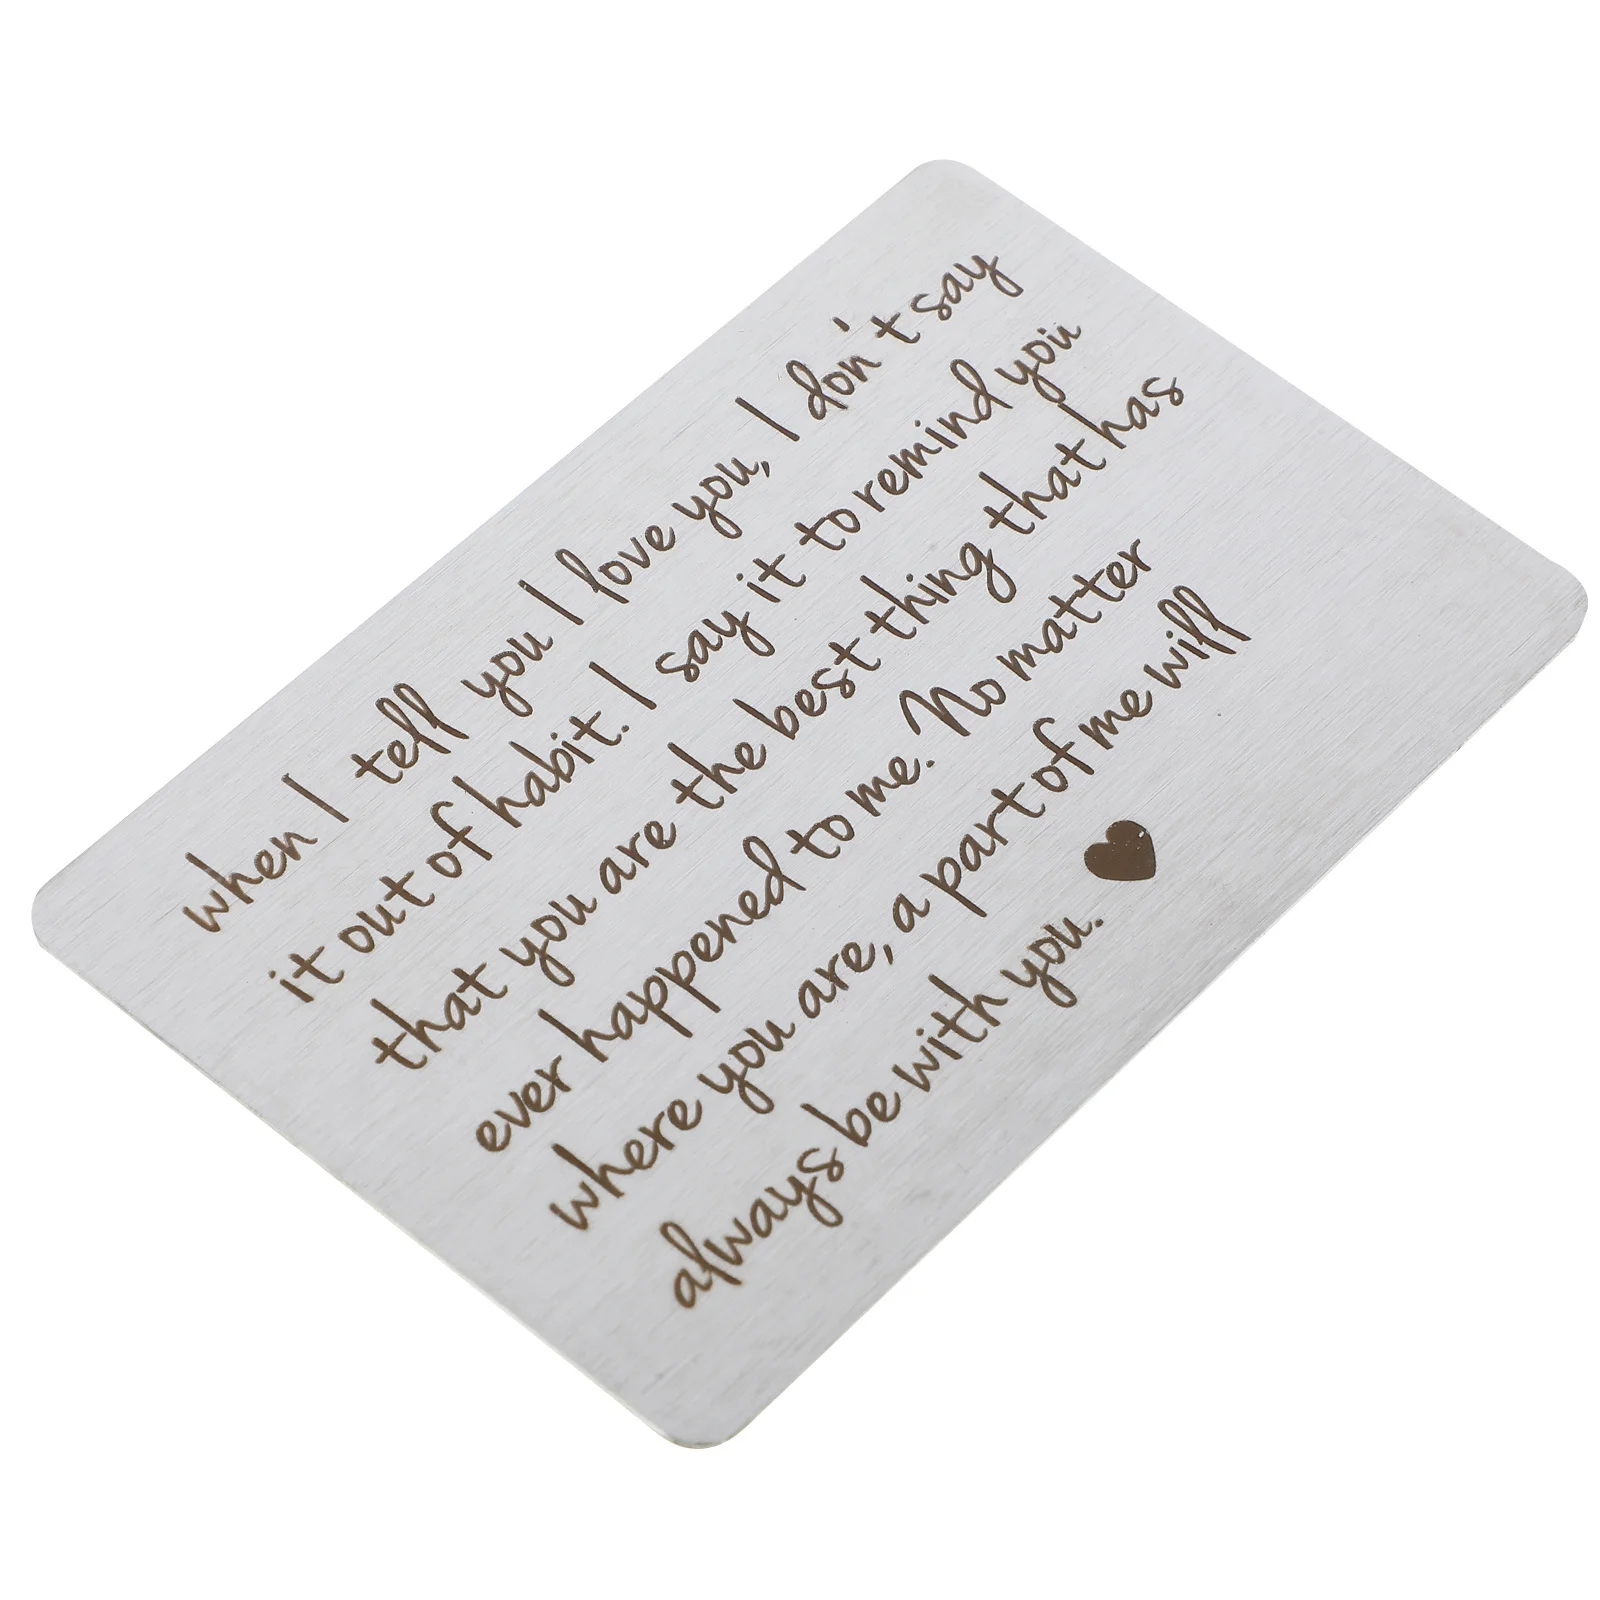 when I tell you I love you, I don't say
it out of habit. I say it to remind you
that you are the best thing that has
ever happened to me. No matter
where you are, a part of me will
always be with you.